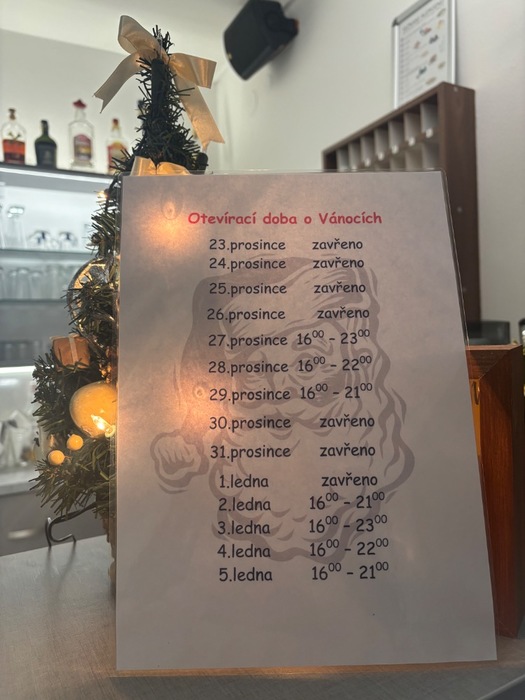 Otevírací doba o Vánocích
23.prosince zavřeno
24.prosince zavřeno
25.prosince zavřeno
26.prosince zavřeno
27.prosince 16⁰⁰ - 23⁰⁰
28.prosince 16⁰⁰ - 22⁰⁰
29.prosince 16⁰⁰ - 21⁰⁰
30.prosince zavřeno
31.prosince zavřeno
1.ledna zavřeno
2.ledna 16⁰⁰ - 21⁰⁰
3.ledna 16⁰⁰ - 23⁰⁰
4.ledna 16⁰⁰ - 22⁰⁰
5.ledna 16⁰⁰ - 21⁰⁰